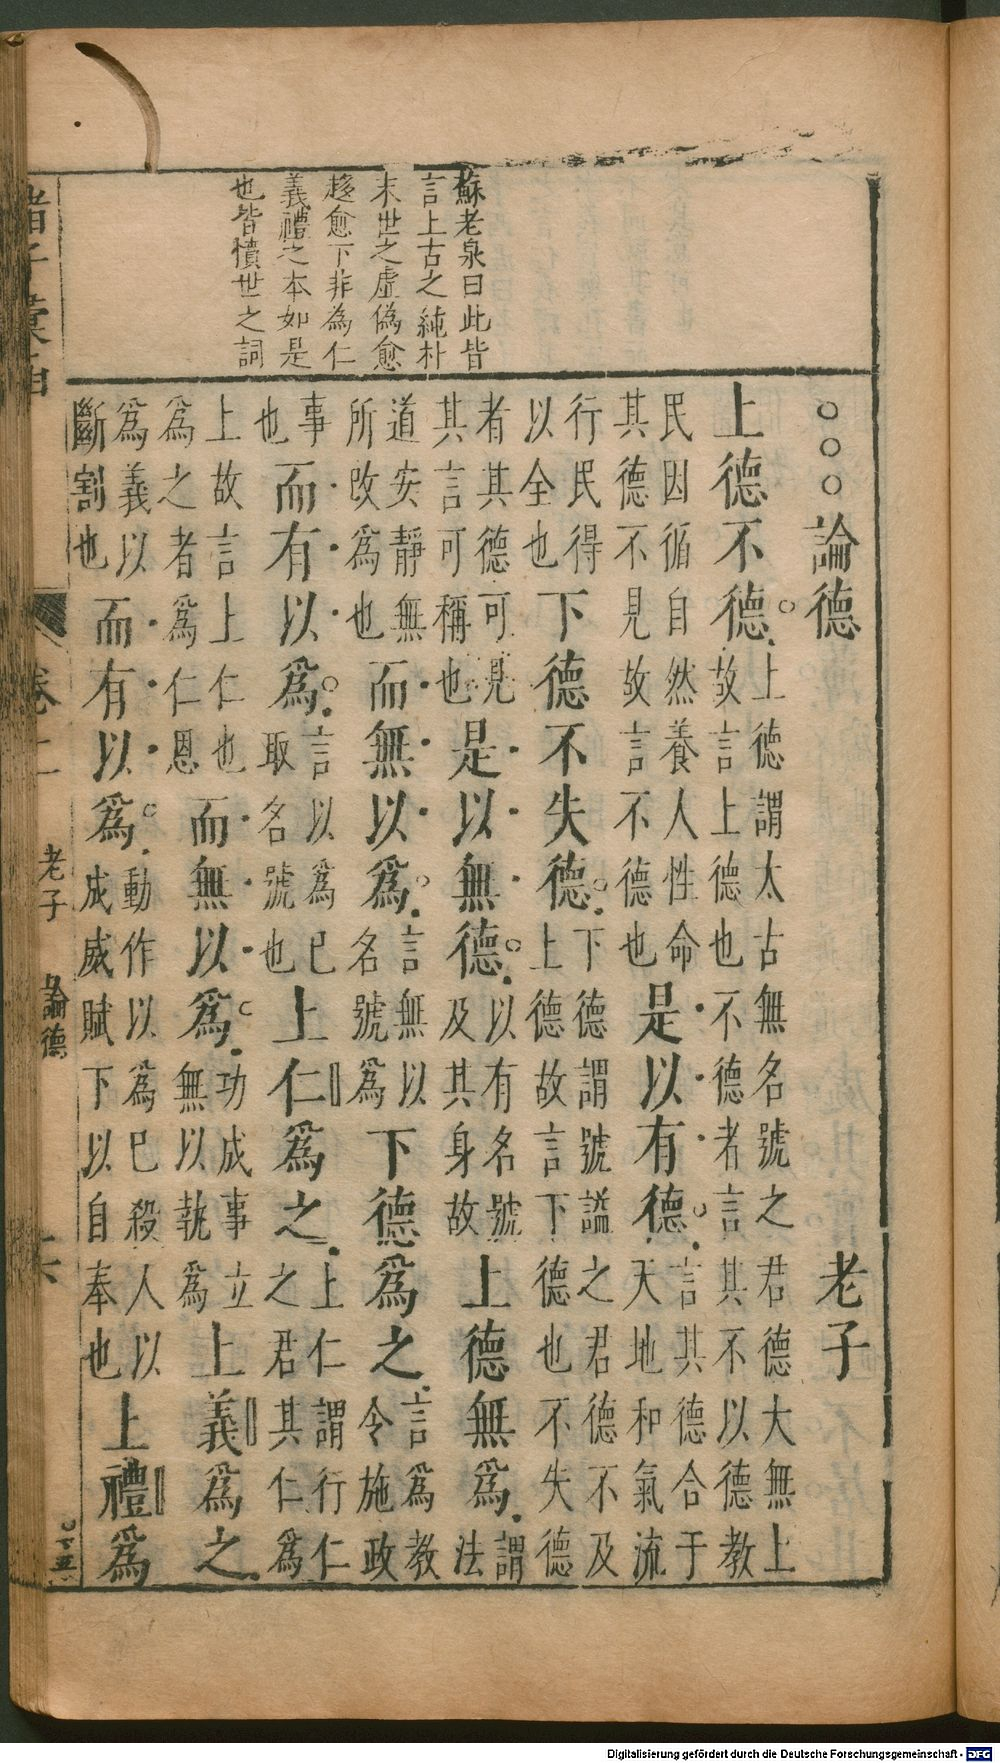 蘇老泉曰此皆
言上古之純朴
末世之虛偽愈
趍愈下非為仁
義禮之本如是
也皆憤世之詞
○○○論德 老子
上德不德。上德謂太古無名號之君德大無上故言上德也不德者言其不以德教
民因循自然養人性命其德不見故言不德也是以有德。言其德合于天地和氣流
行民得以全也下德不失德。下德謂號謚之君德不及上德故言下德也不失德
者其德可見其言可稱也是以無德。以有名號及其身故上德無為謂法
道安靜無所改為也而無以為。言無以名號為下德為之言為教令施政
事也而有以為。言以為已取名號也上仁為之上仁謂行仁之君其仁為
上故言上仁也為之者為仁恩而無以為。功成事立無以執為上義為之
為義以斷割也而有以為。動作以為已殺人以成威賦下以自奉也上禮為
卷二 老子 論德 六
Digitalisierung gefördert durch die Deutsche Forschungsgemeinschaft - DFG